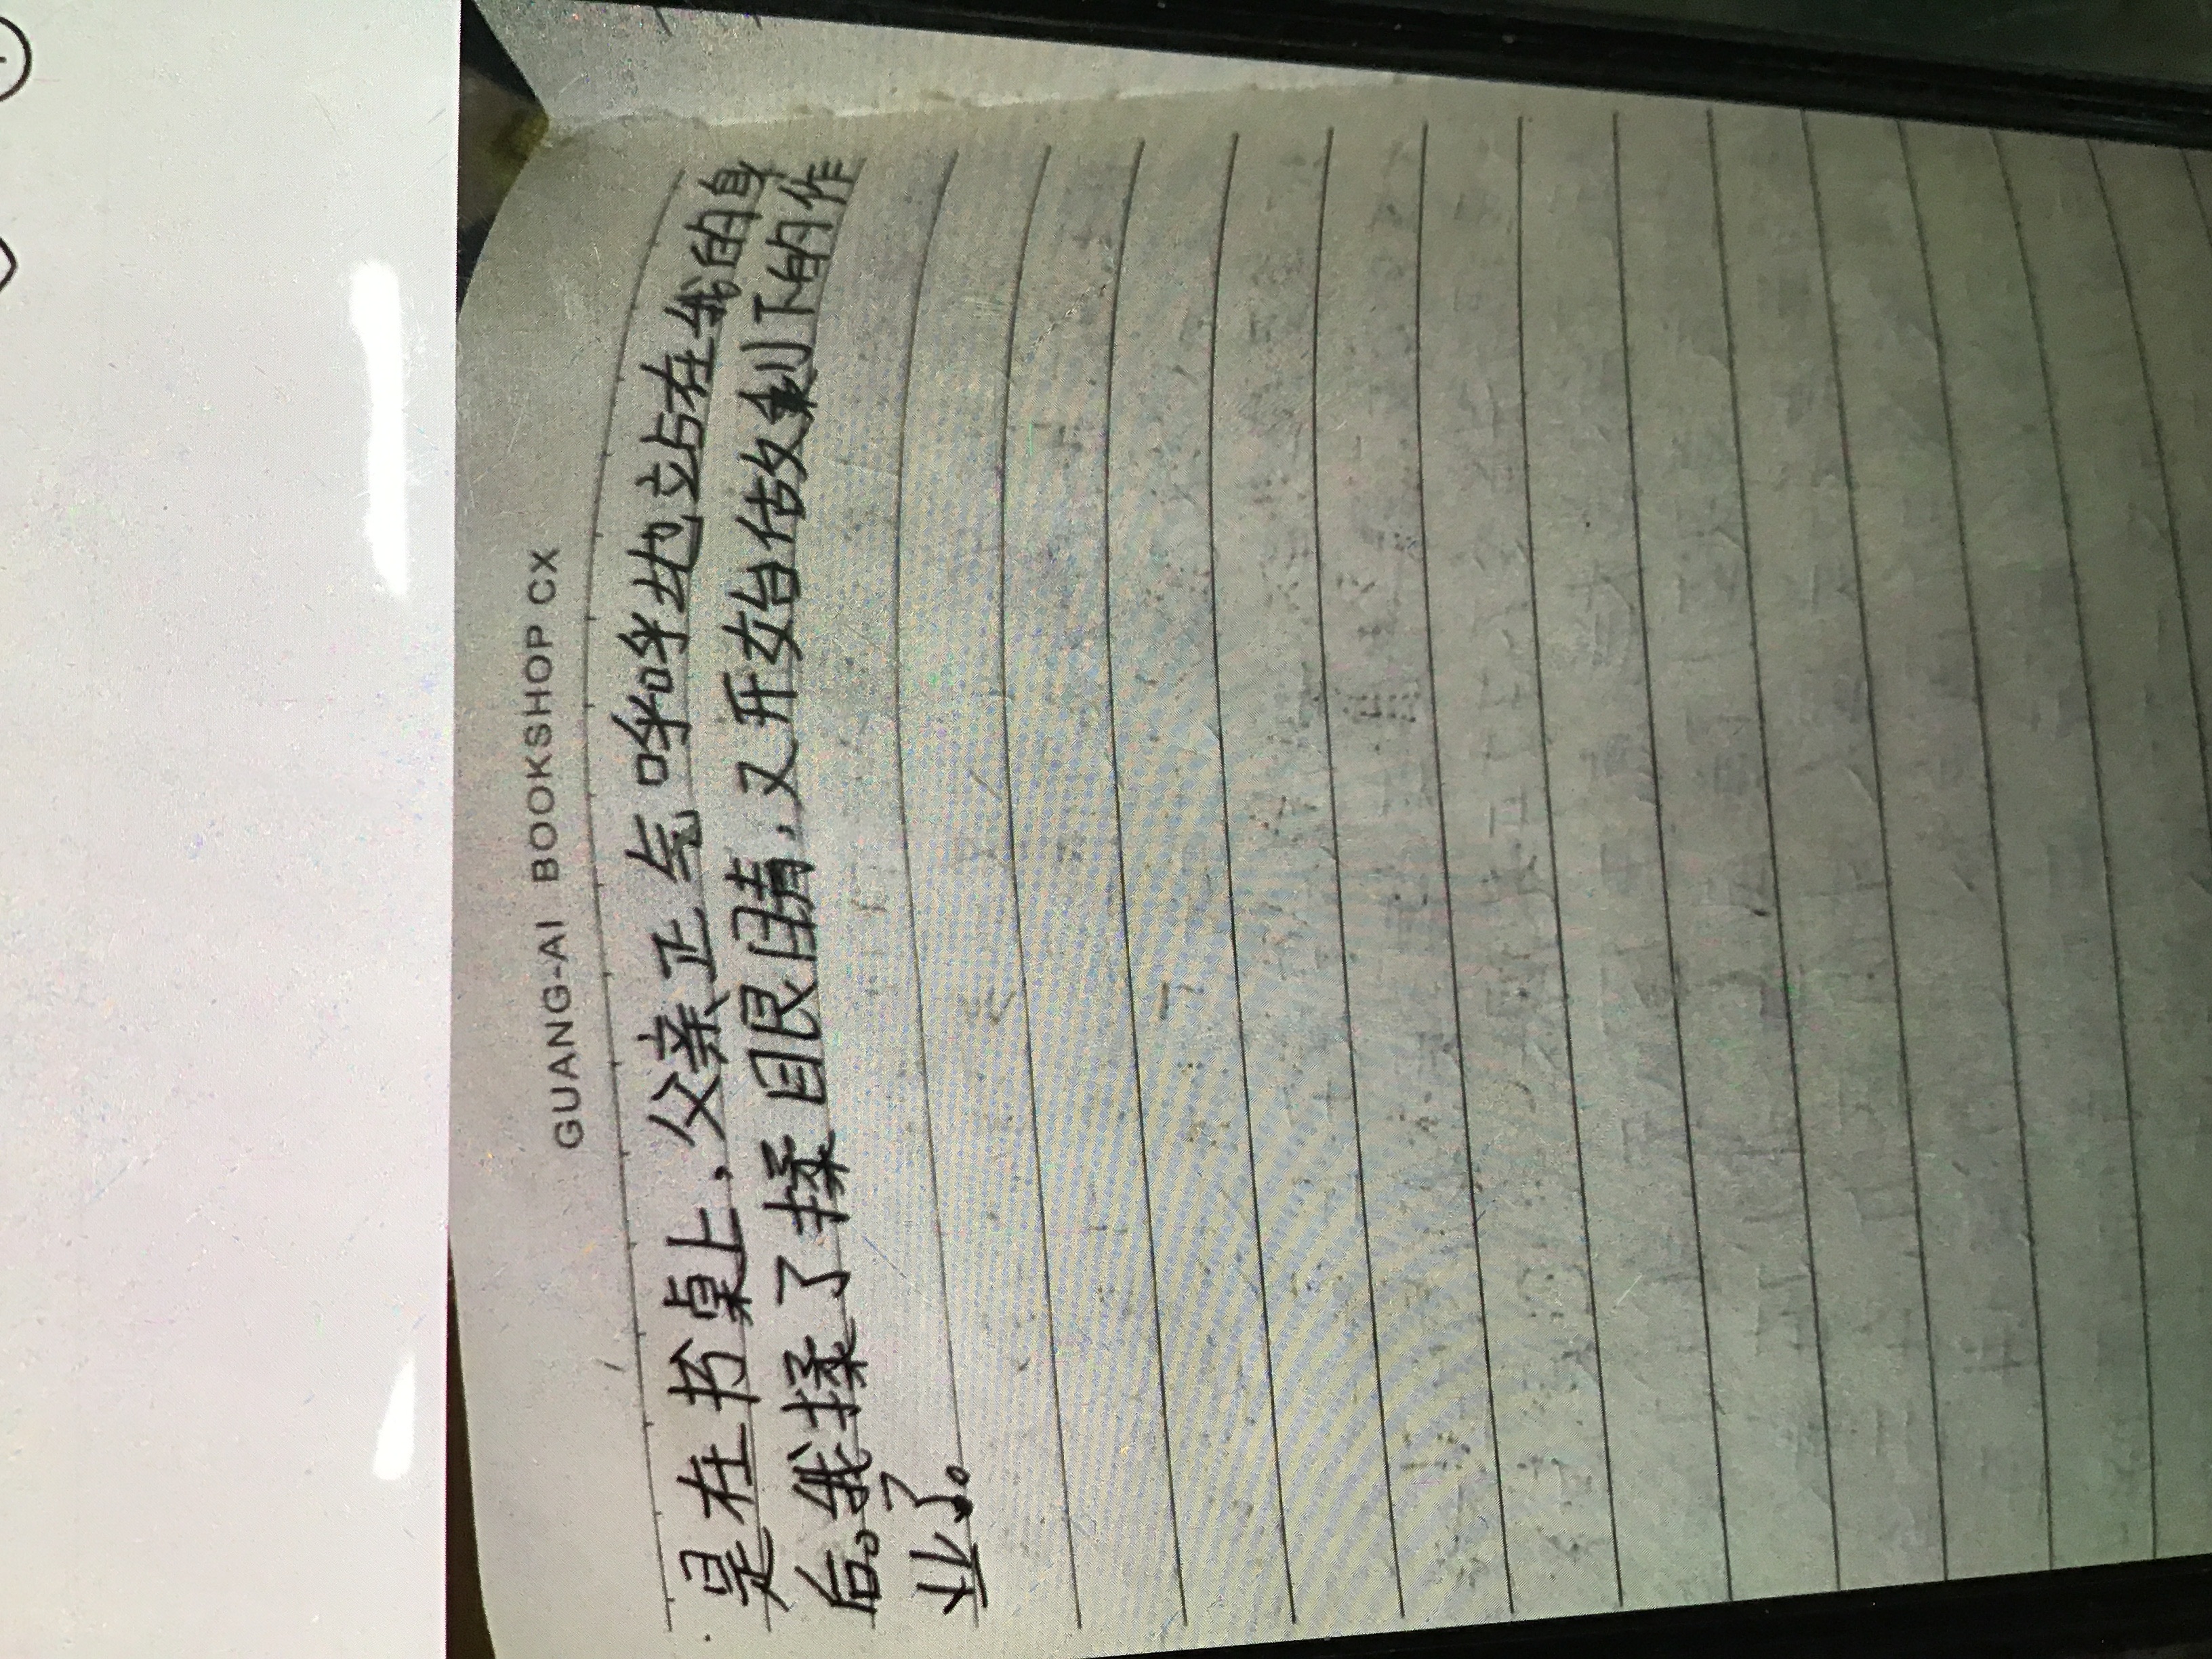 GUANG-AI BOOKSHOP CX
是在书桌上，父亲正气呼呼地站在我的身
后。我揉了揉眼睛，又开始做剩下的作
业了。